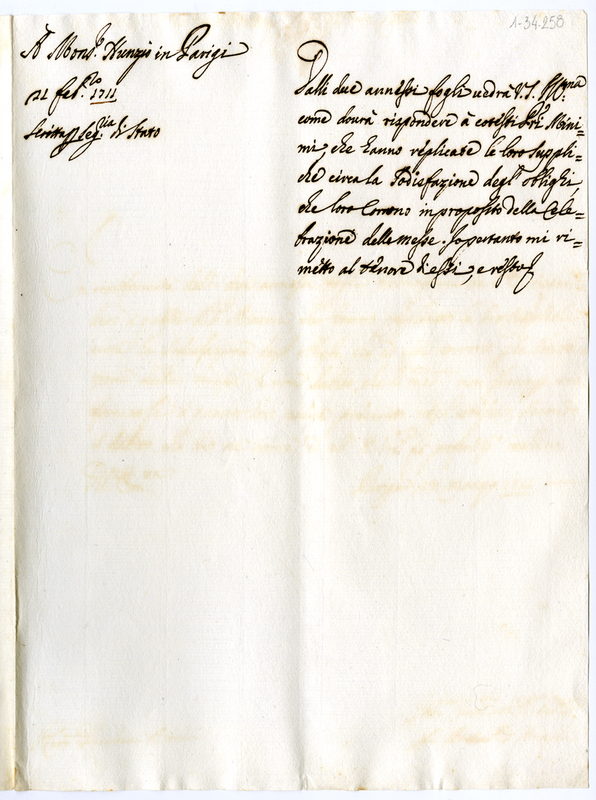 1-34.258
A Mons.r Nunzio in Parigi
21 Feb.ro 1711
Scritta p Seg.ria di Stato
Dalli due annessi fogli uedrà V.S. Ill.ma
come dourà rispondere à cotesti Pri Mini=
mi, che hanno replicate le loro suppli=
che circa la Sodisfazione degl' oblighi,
che loro Corrono in proposito della Cele=
brazione delle messe. Io pertanto mi ri=
metto al tenore di essi, e resto